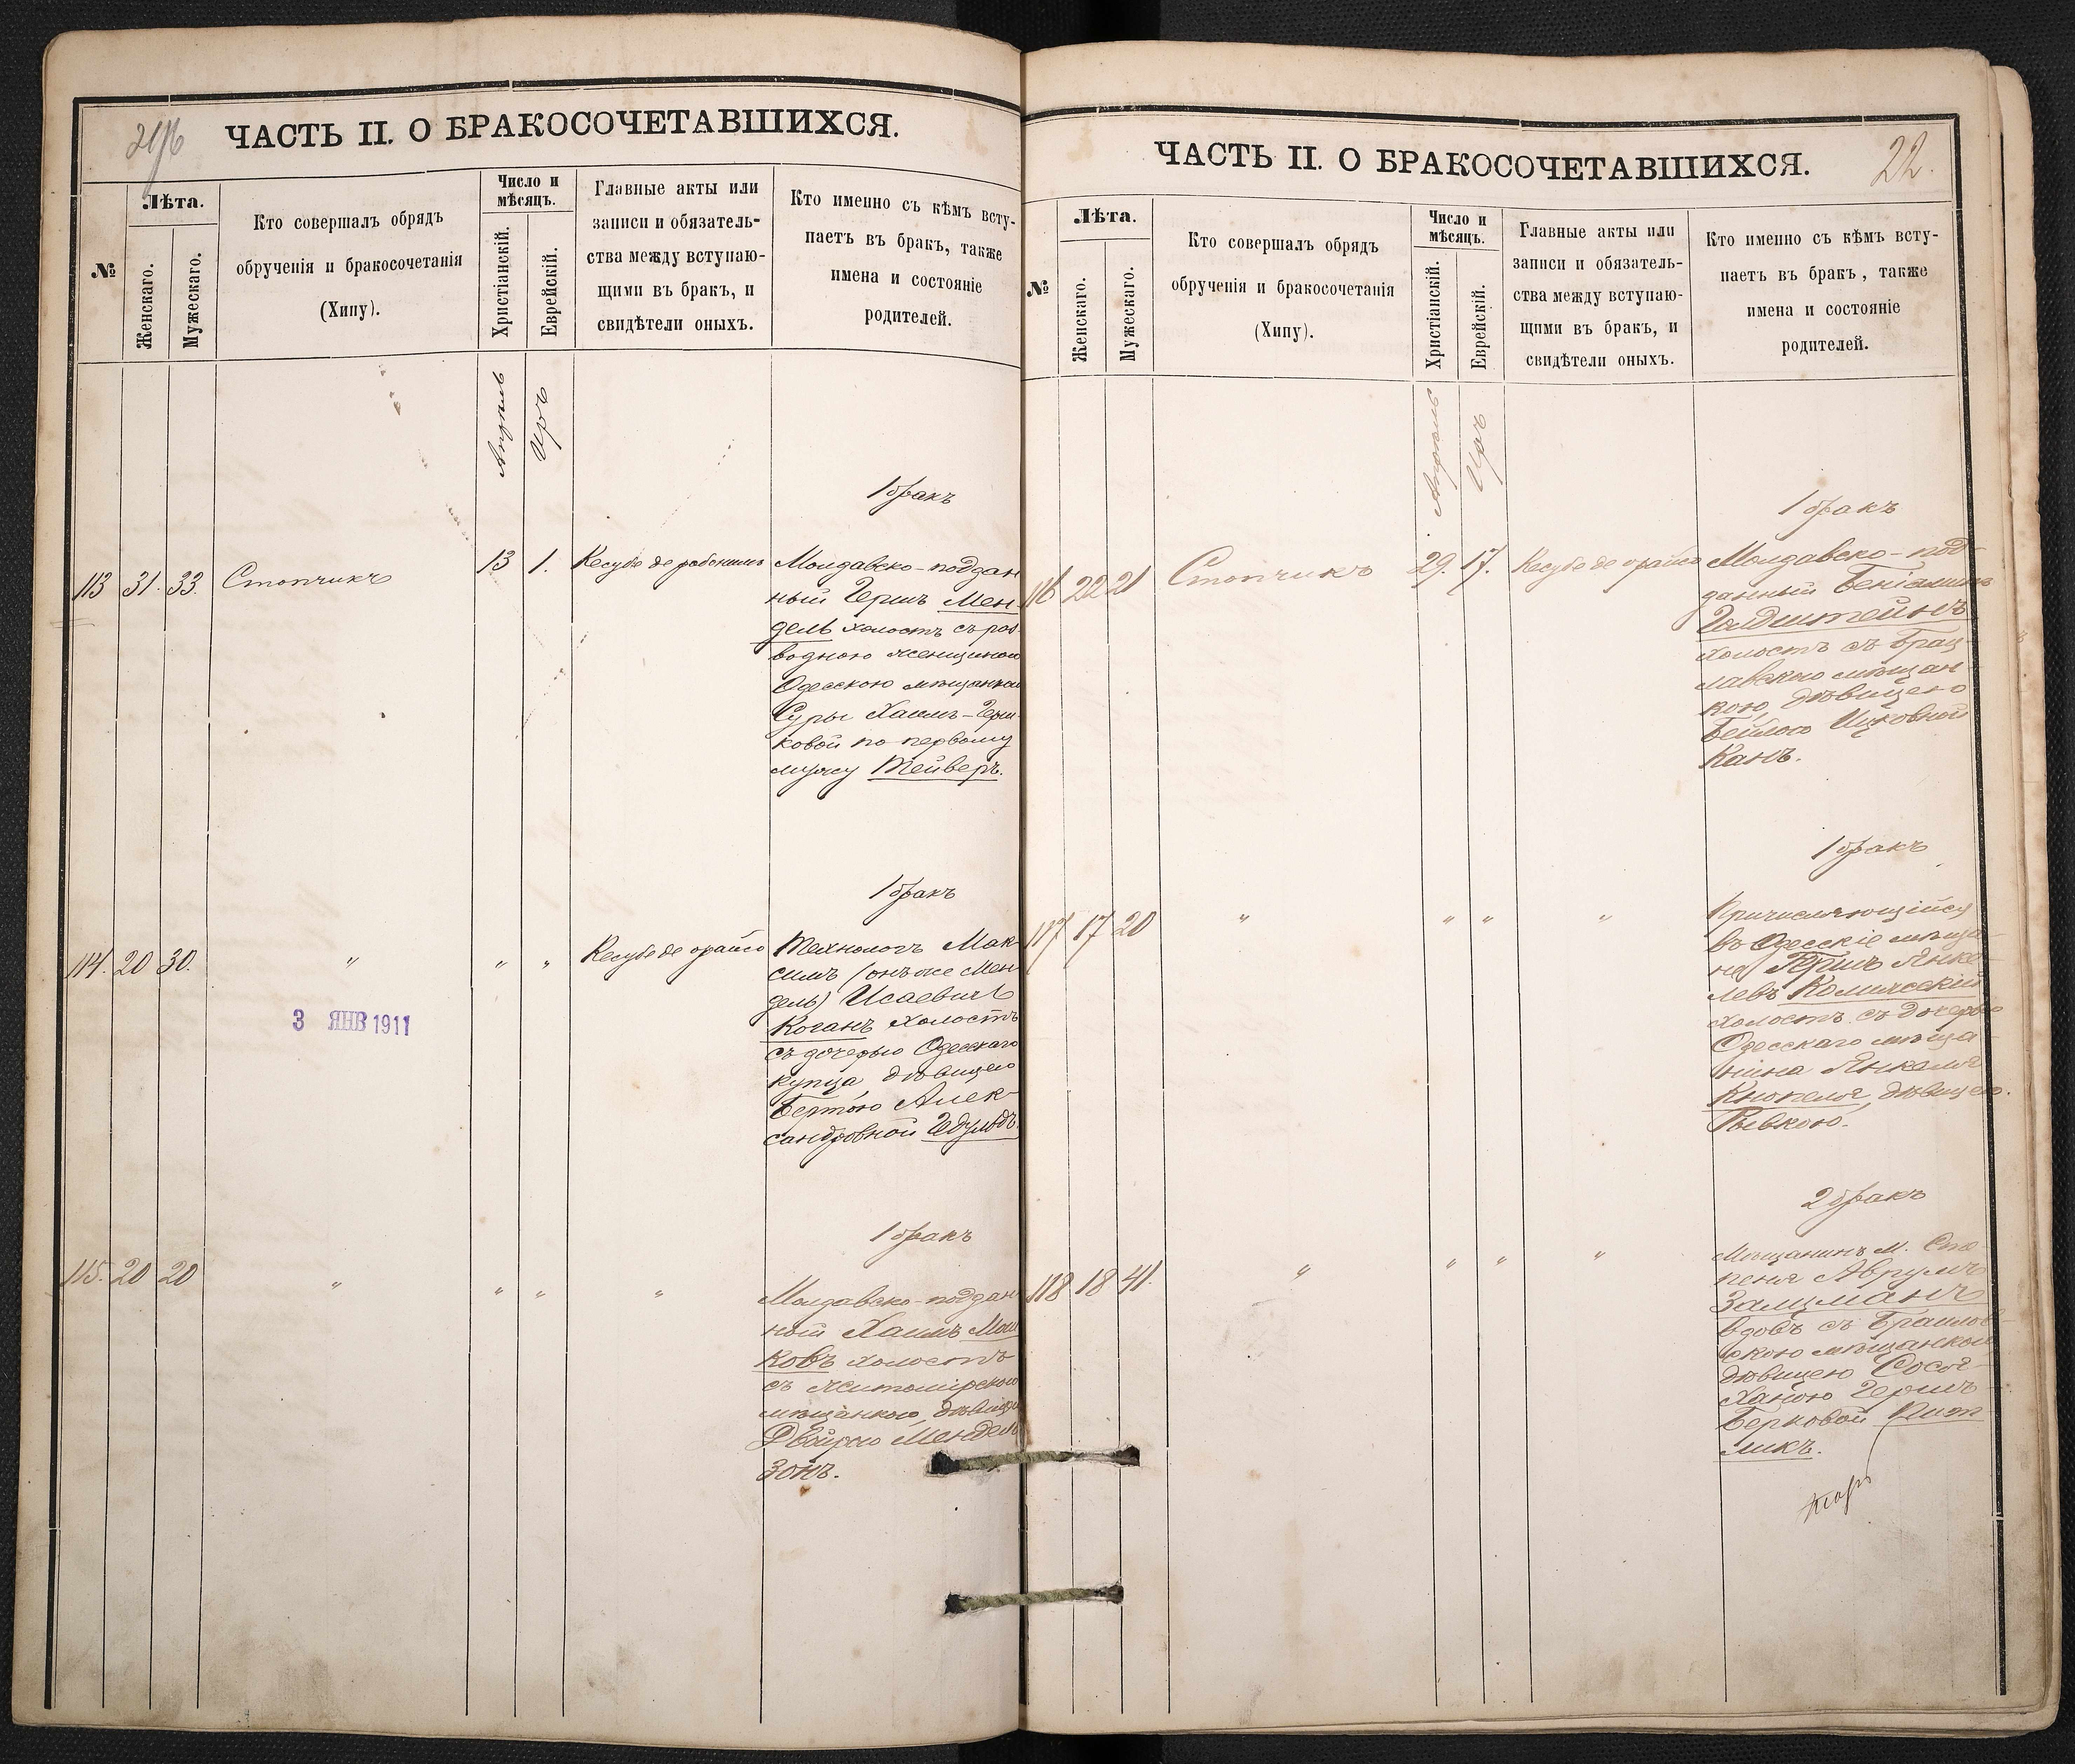 ЧАСТЬ II. О БРАКОСОЧЕТАВШИХСЯ.
№
Лѣта.
Женскаго.
Мужескаго.
Кто совершалъ обрядъ
обрученія и бракосочетанія
(Хипу).
Число и
мѣсяцъ.
Христіанскій.
Еврейскій.
Главные акты или
записи и обязатель-
ства между вступаю-
щими въ бракъ, и
свидѣтели оныхъ.
Кто именно съ кѣмъ всту-
паетъ въ бракъ, также
имена и состояніе
родителей.
Апрѣль
Иръ
1 бракъ
113 31. 33. Стопчикъ 13 1. Кесубе де рабонимъ
Молдавско-поддан
ный Гершъ Мен-
дель холостъ съ раз-
водною женщиною
Одесскою мѣщанкою
Суры Хаимъ-Герш-
ковой по первому
мужу Тейверъ.
1 бракъ
114. 20 30. " " " Кесубе де орайсо
Технологъ Мак-
симъ (онъ же Мен-
дель) Исаевичъ
Коганъ холостъ
съ дочерью Одесскаго
купца, дѣвицею
Бертою Алек-
сандровной Гедульдъ.
3 ЯНВ 1911
1 бракъ
115. 20 20 " " " "
Молдавско-поддан
ный Хаимъ Мош
ковъ холостъ
съ Житомірскою
мѣщанкою, дѣвицею
Двойрою Мендель
зонъ.
ЧАСТЬ II. О БРАКОСОЧЕТАВШИХСЯ.
22.
№
Лѣта.
Женскаго.
Мужескаго.
Кто совершалъ обрядъ
обрученія и бракосочетанія
(Хипу).
Число и
мѣсяцъ.
Христіанскій.
Еврейскій.
Главные акты или
записи и обязатель-
ства между вступаю-
щими въ бракъ, и
свидѣтели оныхъ.
Кто именно съ кѣмъ всту-
паетъ въ бракъ, также
имена и состояніе
родителей.
Апрѣль
Иръ
1 бракъ
116 22 21 Стопчикъ 29. 17. Кесубе де орайсо
Молдавско-под-
данный Беніаминъ
Голдштейнъ
холостъ съ Брац
лавскою мѣщан
кою, дѣвицею
Бейлою Ицковной
Канъ.
1 бракъ
117 17 20 " " " "
Причисляющійся
въ Одесскіе мѣща-
не Гершъ Янке-
левъ Колижскій
холостъ съ дочерью
Одесскаго мѣща-
нина Янкеля
Кнопеля, дѣвицею.
Рывкою.
2 бракъ
118 18 41. " " " "
Мѣщанинъ М. Сто-
пеня Аврумъ
Залцманъ
вдовъ съ Браилов-
скою мѣщанкой
дѣвицею Сося-
Ханою Гершъ-
Берковой Пит-
ликъ.